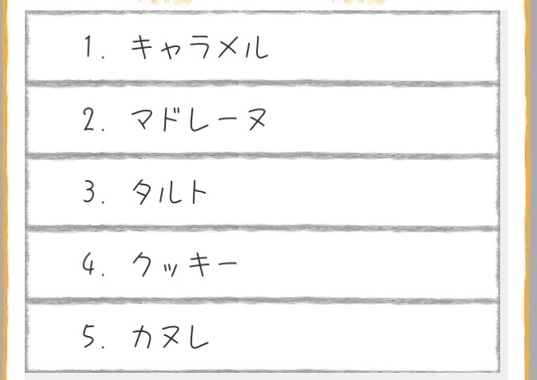 1. キャラメル
2. マドレーヌ
3. タルト
4. クッキー
5. カヌレ